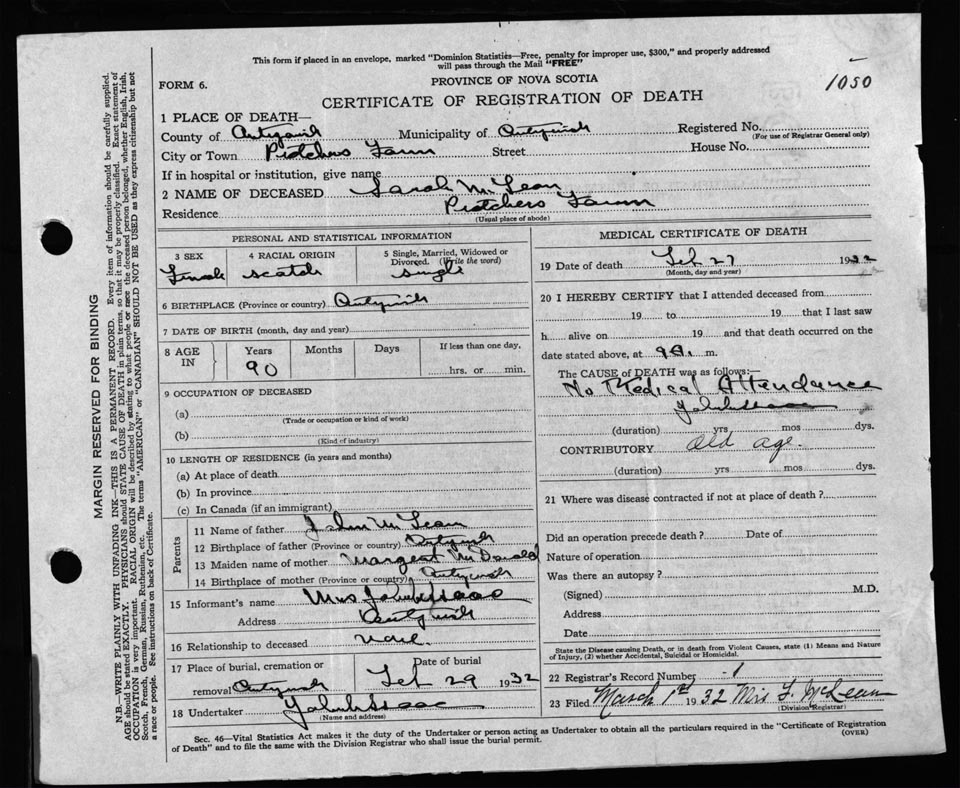 This form if placed in an envelope, marked "Dominion Statistics—Free, penalty for improper use, $300," and properly addressed
will pass through the Mail "FREE"
FORM 6.
PROVINCE OF NOVA SCOTIA
1050
CERTIFICATE OF REGISTRATION OF DEATH
1 PLACE OF DEATH—
County of Antigonish Municipality of Antigonish Registered No.
(For use of Registrar General only)
City or Town Pretchers Farm Street House No.
If in hospital or institution, give name
2 NAME OF DECEASED Sarah McLean
Residence Pretchers Farm
(Usual place of abode)
PERSONAL AND STATISTICAL INFORMATION
3 SEX 4 RACIAL ORIGIN 5 Single, Married, Widowed or Divorced. (Write the word)
Female Scotch Single
6 BIRTHPLACE (Province or country) Antigonish
7 DATE OF BIRTH (month, day and year)
8 AGE IN Years Months Days If less than one day,
90 hrs. or min.
9 OCCUPATION OF DECEASED
(a)
(Trade or occupation or kind of work)
(b)
(Kind of industry)
10 LENGTH OF RESIDENCE (in years and months)
(a) At place of death
(b) In province
(c) In Canada (if an immigrant)
Parents
11 Name of father John McLean
12 Birthplace of father (Province or country) Antigonish
13 Maiden name of mother Margaret McDonald
14 Birthplace of mother (Province or country) Antigonish
15 Informant's name Mrs
Address Antigonish
16 Relationship to deceased
17 Place of burial, cremation or Date of burial
removal Antigonish Feb 29 1932
18 Undertaker
(Name and address)
MEDICAL CERTIFICATE OF DEATH
19 Date of death Feb 27 1932
(Month, day and year)
20 I HEREBY CERTIFY that I attended deceased from
19 to 19 that I last saw
h alive on 19 and that death occurred on the
date stated above, at m.
The CAUSE of DEATH was as follows:—
No Medical Attendance
(duration) yrs mos dys.
CONTRIBUTORY old age.
(duration) yrs mos dys.
21 Where was disease contracted if not at place of death?
Did an operation precede death? Date of
Nature of operation
Was there an autopsy?
(Signed) M.D.
Address
Date
State the Disease causing Death, or in death from Violent Causes, state (1) Means and Nature
of Injury, (2) whether Accidental, Suicidal or Homicidal.
22 Registrar's Record Number 1
23 Filed March 1st 1932 Mrs F. McLean
(Division Registrar)
Sec. 46—Vital Statistics Act makes it the duty of the Undertaker or person acting as Undertaker to obtain all the particulars required in the "Certificate of Registration
of Death" and to file the same with the Division Registrar who shall issue the burial permit.
(OVER)
MARGIN RESERVED FOR BINDING
N.B.—WRITE PLAINLY WITH UNFADING INK—THIS IS A PERMANENT RECORD. Every item of information should be carefully supplied.
AGE should be stated EXACTLY. PHYSICIANS should STATE CAUSE OF DEATH in plain terms, so that it may be properly classified. Exact statement of
OCCUPATION is very important. RACIAL ORIGIN will be described by stating to what people or race the deceased person belonged, whether English, Irish,
Scotch, French, German, Russian, Ruthenian, etc. The terms "AMERICAN" or "CANADIAN" SHOULD NOT BE USED as they express citizenship but not
a race or people. See instructions on back of Certificate.